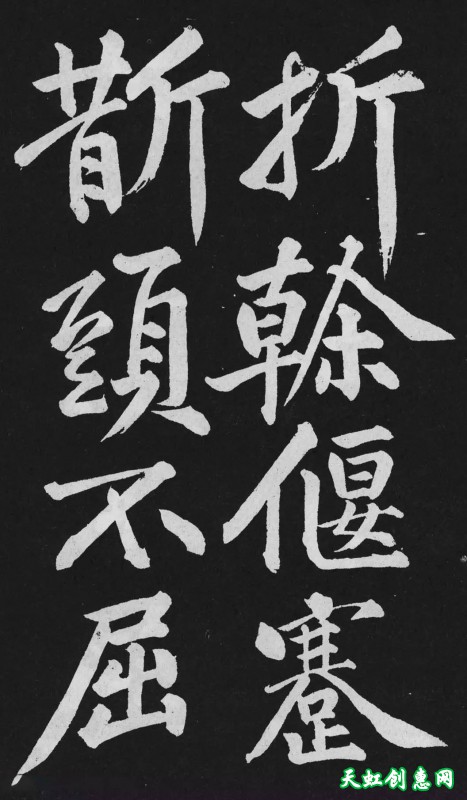 折榦偃蹇
斮頭不屈
天虹创惠网